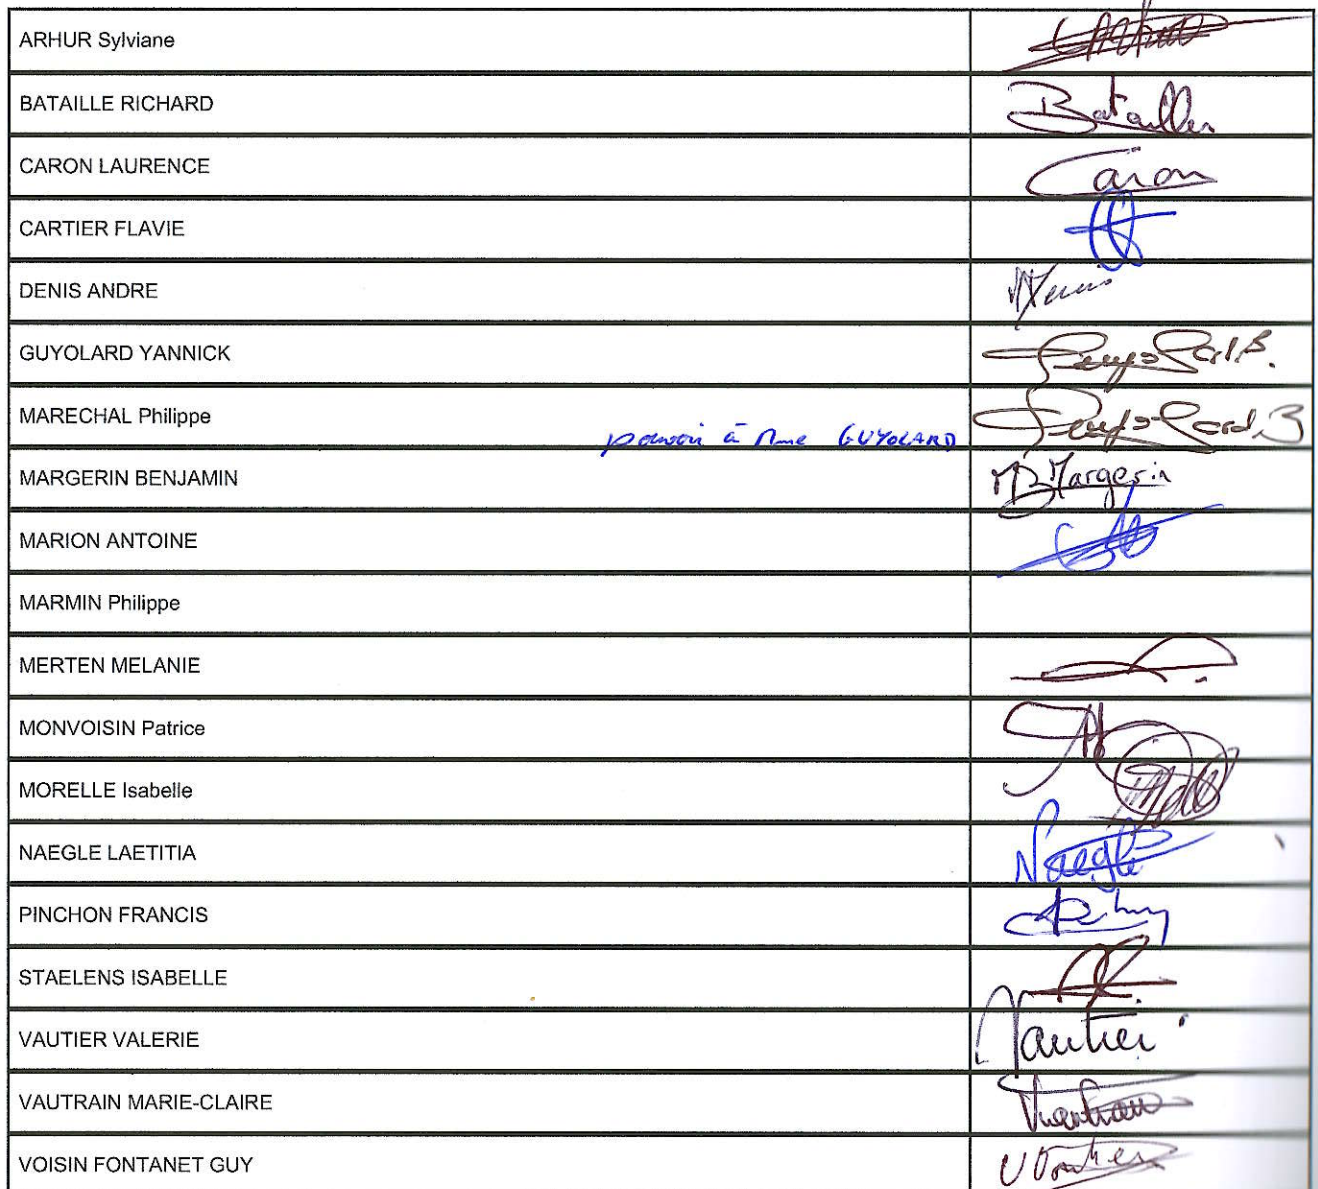 ARHUR Sylviane
BATAILLE RICHARD Bataille
CARON LAURENCE Caron
CARTIER FLAVIE
DENIS ANDRE
GUYOLARD YANNICK Guyolard B.
MARECHAL Philippe pouvoir à Mme GUYOLARD Guyolard B
MARGERIN BENJAMIN MB Margerin
MARION ANTOINE
MARMIN Philippe
MERTEN MELANIE
MONVOISIN Patrice
MORELLE Isabelle
NAEGLE LAETITIA Naegle
PINCHON FRANCIS
STAELENS ISABELLE
VAUTIER VALERIE Vautier
VAUTRAIN MARIE-CLAIRE Vautrain
VOISIN FONTANET GUY